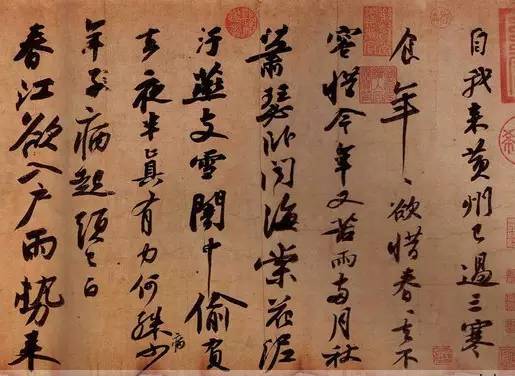 自我来黄州已過三寒
食年〻欲惜春〻去不
容惜今年又苦雨兩月秋
蕭瑟卧聞海棠花泥
汙燕支雪闇中偷負
去夜半真有力何殊少
病
年子病起頭已白
春江欲入户雨勢来